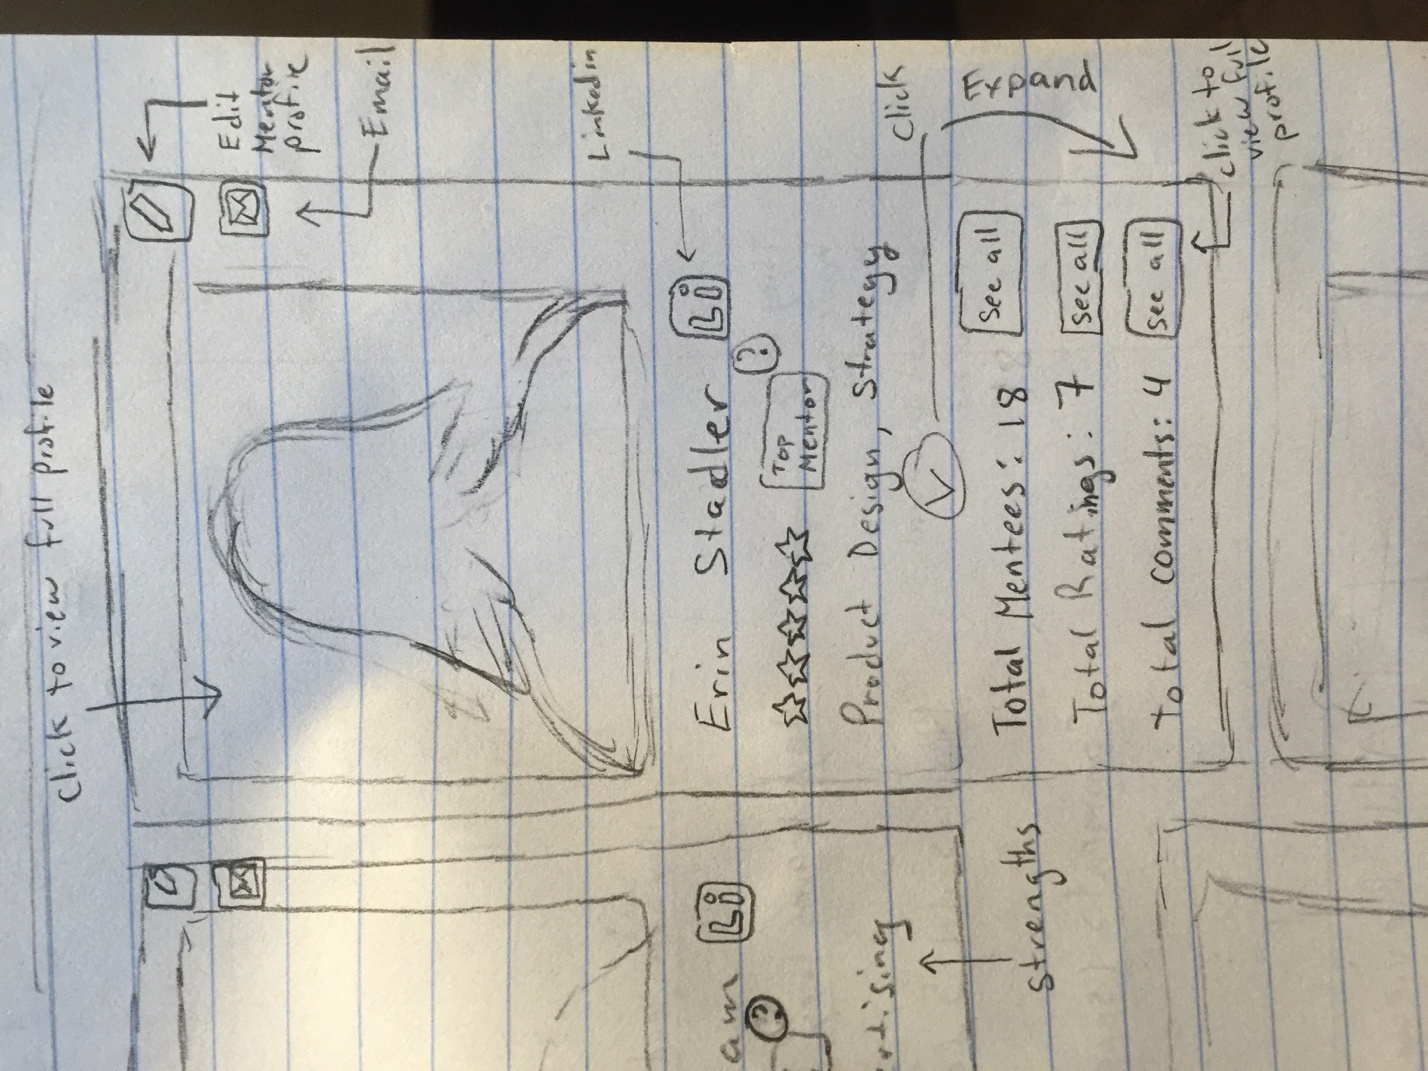 Click to view full profile
Edit
Mentor
profile
Email
Linkedin
Erin Stadler
Li
?
Top
Mentor
Product Design, Strategy
Click
Expand
Total Mentees: 18
See all
Total Ratings: 7
See all
Total comments: 4
See all
click to
view full
profile
am
Li
?
rtising
Strengths